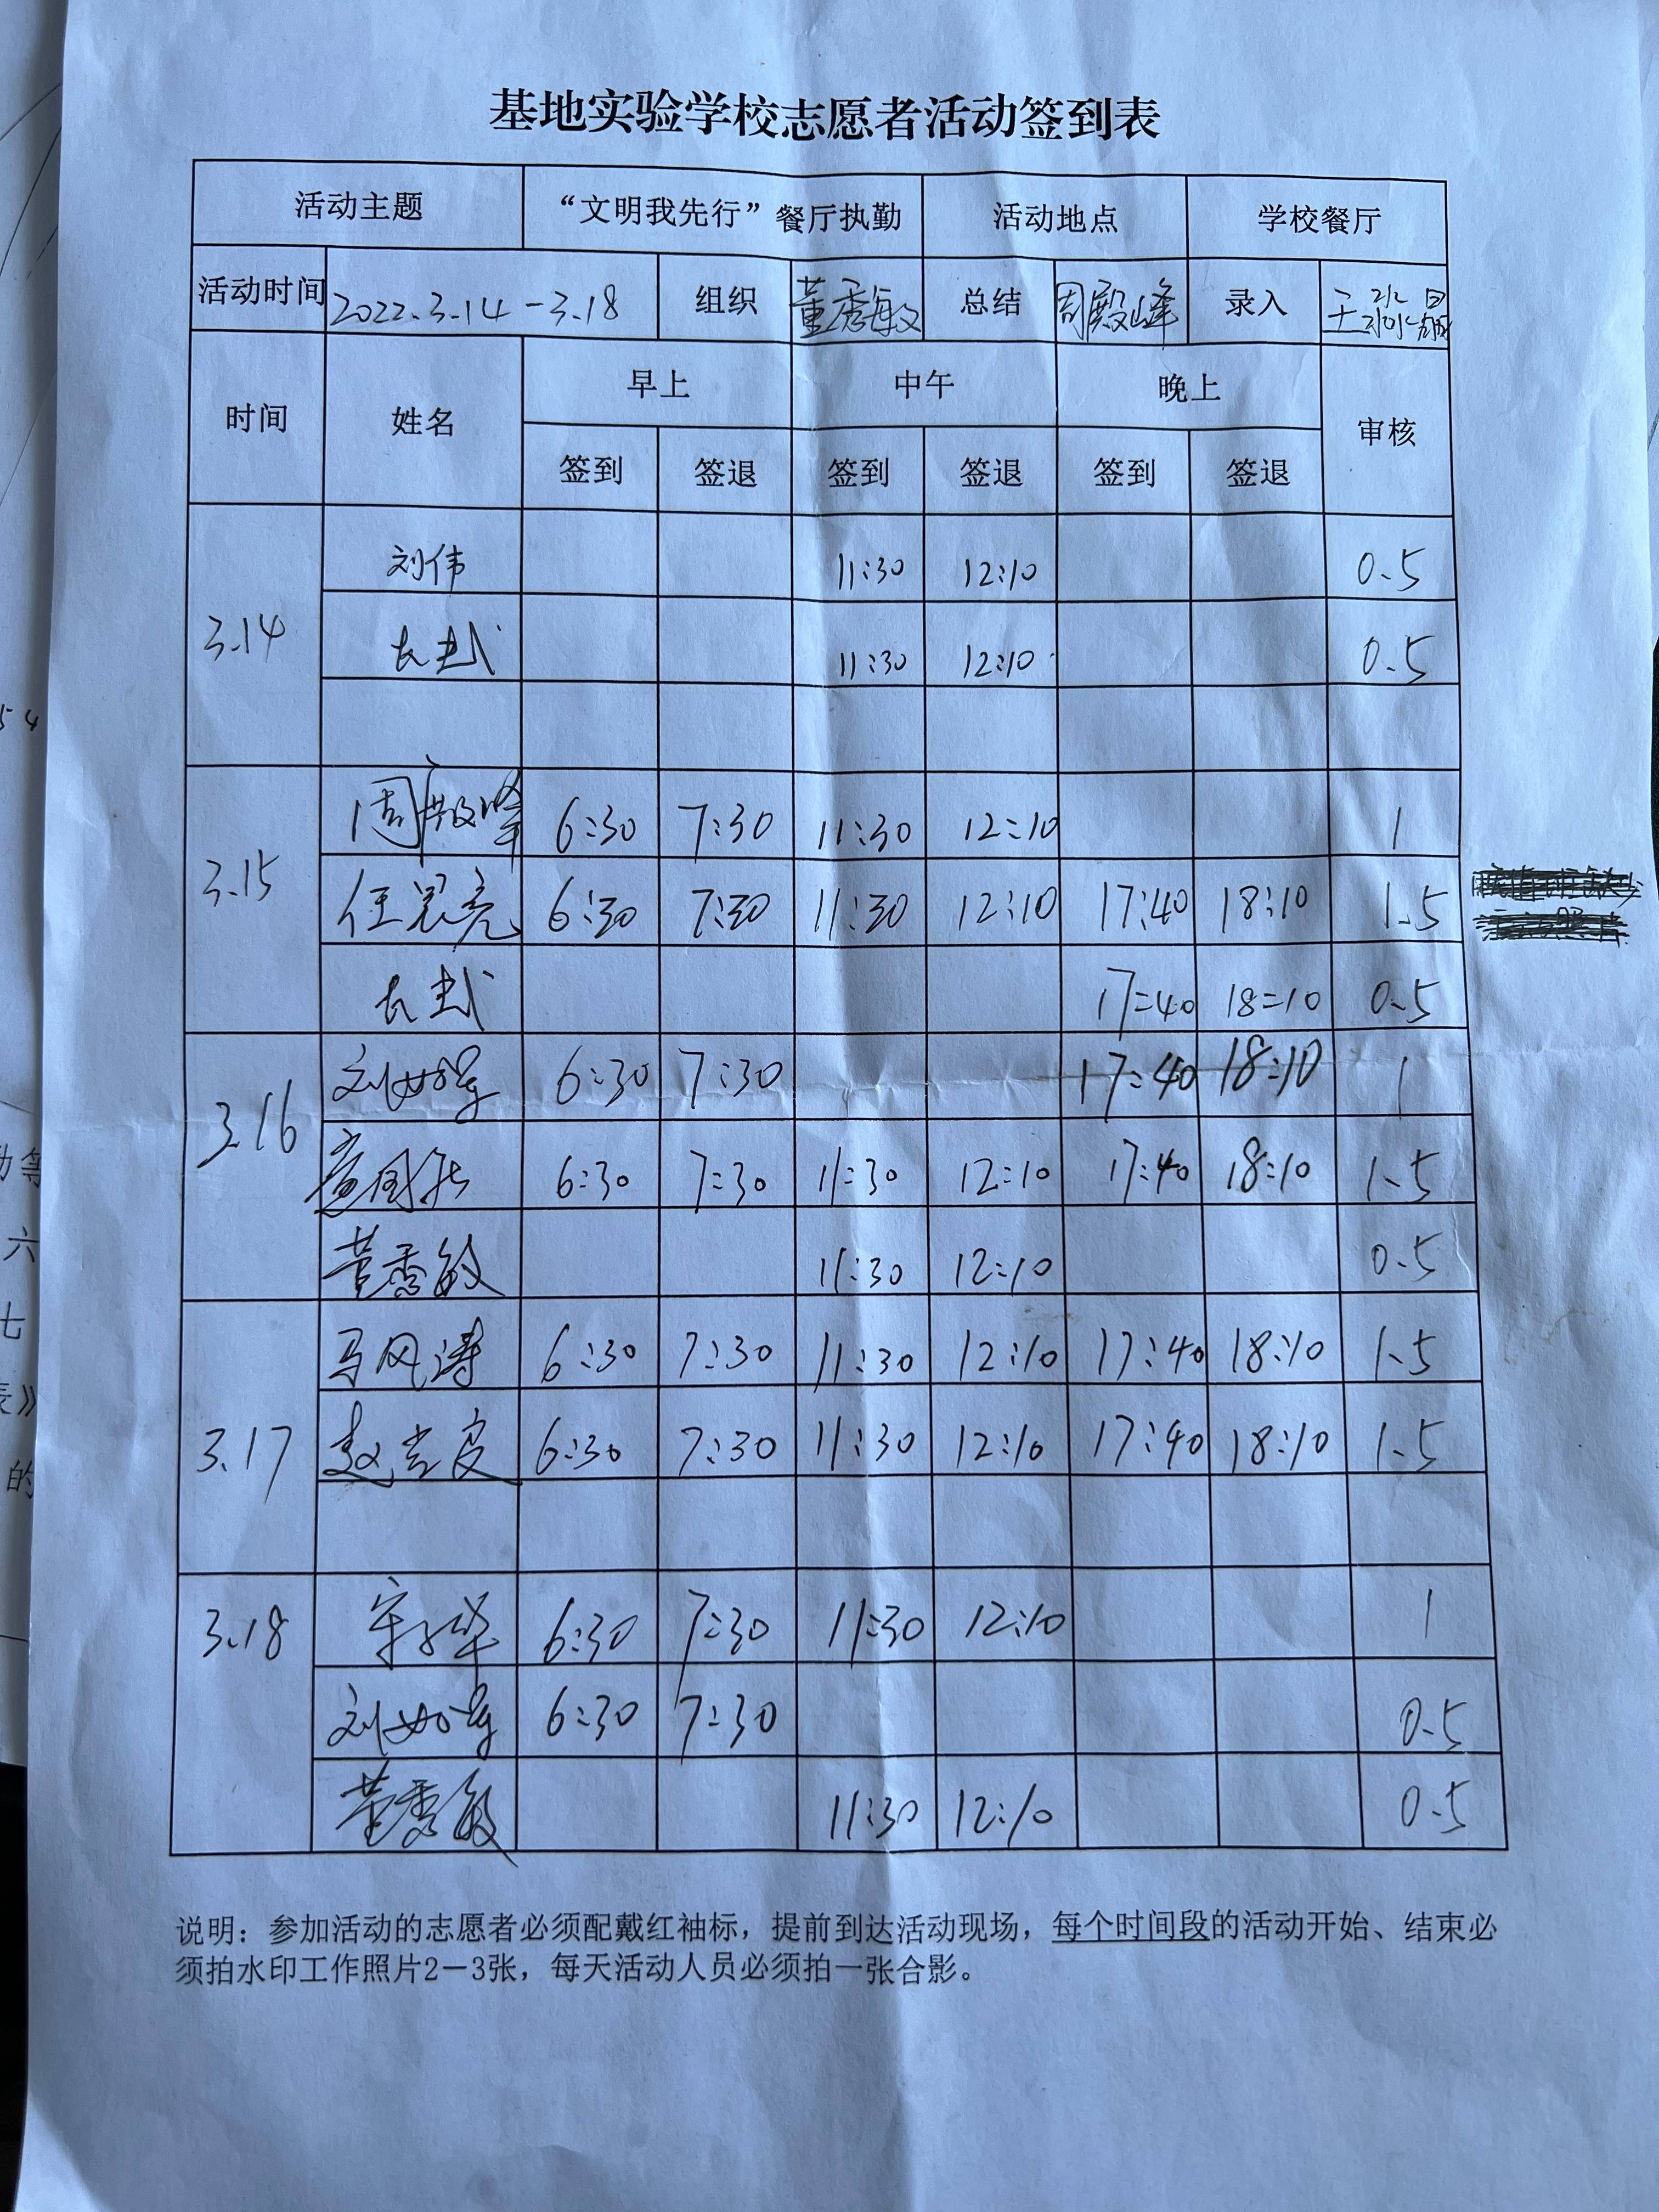 基地实验学校志愿者活动签到表
活动主题 “文明我先行”餐厅执勤 活动地点 学校餐厅
活动时间 2022.3.14-3.18 组织 董秀敏 总结 周殿峰 录入 王淼晶
时间 姓名 早上 中午 晚上 审核
签到 签退 签到 签退 签到 签退
3.14 刘伟 11:30 12:10 0.5
11:30 12:10 0.5
3.15 周殿峰 6:30 7:30 11:30 12:10 1
6:30 7:30 11:30 12:10 17:40 18:10 1.5
17:40 18:10 0.5
3.16 6:30 7:30 17:40 18:10 1
6:30 7:30 11:30 12:10 17:40 18:10 1.5
董秀敏 11:30 12:10 0.5
3.17 马风涛 6:30 7:30 11:30 12:10 17:40 18:10 1.5
6:30 7:30 11:30 12:10 17:40 18:10 1.5
3.18 6:30 7:30 11:30 12:10 1
6:30 7:30 0.5
董秀敏 11:30 12:10 0.5
说明：参加活动的志愿者必须配戴红袖标，提前到达活动现场，每个时间段的活动开始、结束必
须拍水印工作照片2－3张，每天活动人员必须拍一张合影。
54
动等
六
七
表》
的